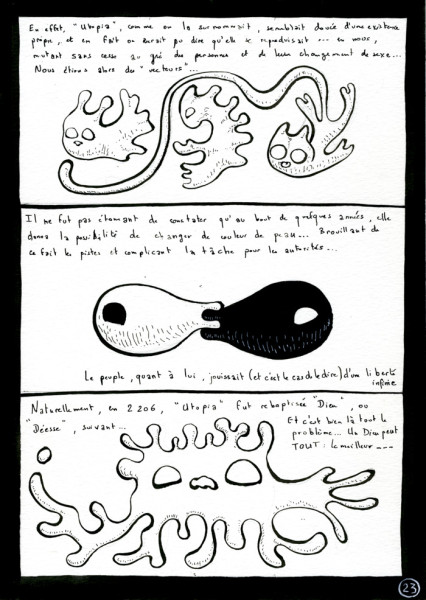 En effet, "Utopia", comme on la surnommait, semblait douée d'une existence
propre, et en fait on aurait pu dire qu'elle se reproduisait... en nous,
mutant sans cesse au gré des personnes et de leur changement de sexe...
Nous étions alors des "vecteurs"...
Il ne fut pas étonnant de constater qu'au bout de quelques années, elle
donna la possibilité de changer de couleur de peau... Brouillant de
ce fait les pistes et compliquant la tâche pour les autorités...
Le peuple, quant à lui, jouissait (et c'est le cas de le dire) d'une liberté
infinie
Naturellement, en 2206, "Utopia" fut rebaptisée "Dieu", ou
"Déesse", suivant...
Et c'est bien là tout le
problème... Un Dieu peut
TOUT: le meilleur ---
23